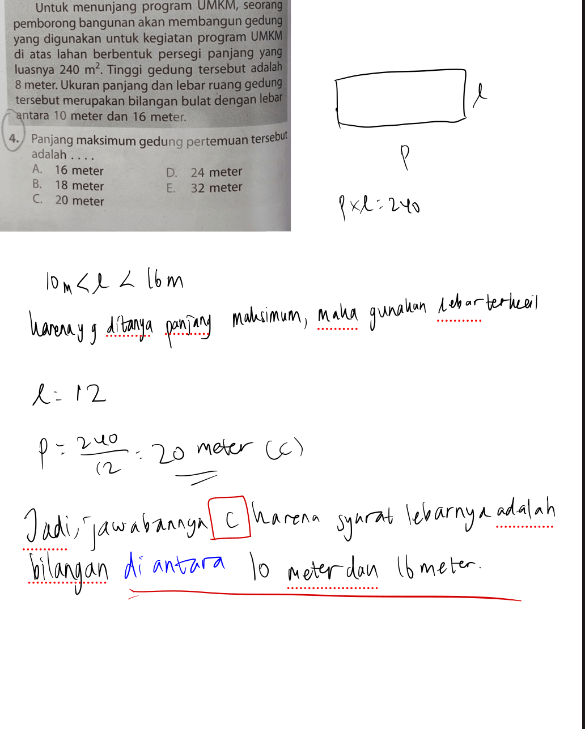 Untuk menunjang program UMKM, seorang
pemborong bangunan akan membangun gedung
yang digunakan untuk kegiatan program UMKM
di atas lahan berbentuk persegi panjang yang
luasnya 240 m². Tinggi gedung tersebut adalah
8 meter. Ukuran panjang dan lebar ruang gedung
tersebut merupakan bilangan bulat dengan lebar
antara 10 meter dan 16 meter.
4. Panjang maksimum gedung pertemuan tersebut
adalah . . . .
A. 16 meter
B. 18 meter
C. 20 meter
D. 24 meter
E. 32 meter
l
p
p x l = 240
10 m < l < 16 m
karena yg ditanya panjang maksimum, maka gunakan lebar terkecil
l = 12
p = 240/12 = 20 meter (C)
Jadi, jawabannya C karena syarat lebarnya adalah
bilangan di antara 10 meter dan 16 meter.